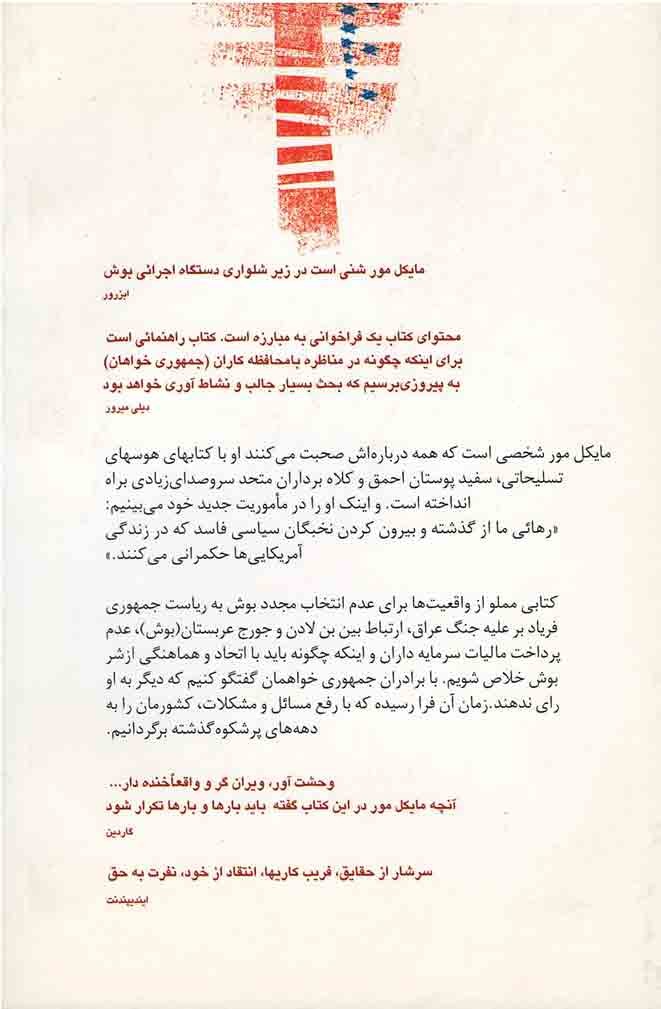 مایکل مور شنی است در زیر شلواری دستگاه اجرائی بوش
ابزرور
محتوای کتاب یک فراخوانی به مبارزه است. کتاب راهنمائی است
برای اینکه چگونه در مناظره بامحافظه کاران (جمهوری خواهان)
به پیروزی‌برسیم که بحث بسیار جالب و نشاط آوری خواهد بود
دیلی میرور
مایکل مور شخصی است که همه درباره‌اش صحبت می‌کنند او با کتابهای هوسهای
تسلیحاتی، سفید پوستان احمق و کلاه برداران متحد سروصدای‌زیادی براه
انداخته است. و اینک او را در مأموریت جدید خود می‌بینیم:
«رهائی ما از گذشته و بیرون کردن نخبگان سیاسی فاسد که در زندگی
آمریکایی‌ها حکمرانی می‌کنند.»
کتابی مملو از واقعیت‌ها برای عدم انتخاب مجدد بوش به ریاست جمهوری
فریاد بر علیه جنگ عراق، ارتباط بین بن لادن و جورج عربستان(بوش)، عدم
پرداخت مالیات سرمایه داران و اینکه چگونه باید با اتحاد و هماهنگی ازشر
بوش خلاص شویم. با برادران جمهوری خواهمان گفتگو کنیم که دیگر به او
رای ندهند.زمان آن فرا رسیده که با رفع مسائل و مشکلات، کشورمان را به
دهه‌های پرشکوه‌گذشته برگردانیم.
وحشت آور، ویران گر و واقعاًخنده دار...
آنچه مایکل مور در این کتاب گفته باید بارها و بارها تکرار شود
گاردین
سرشار از حقایق، فریب کاریها، انتقاد از خود، نفرت به حق
ایندیپندنت